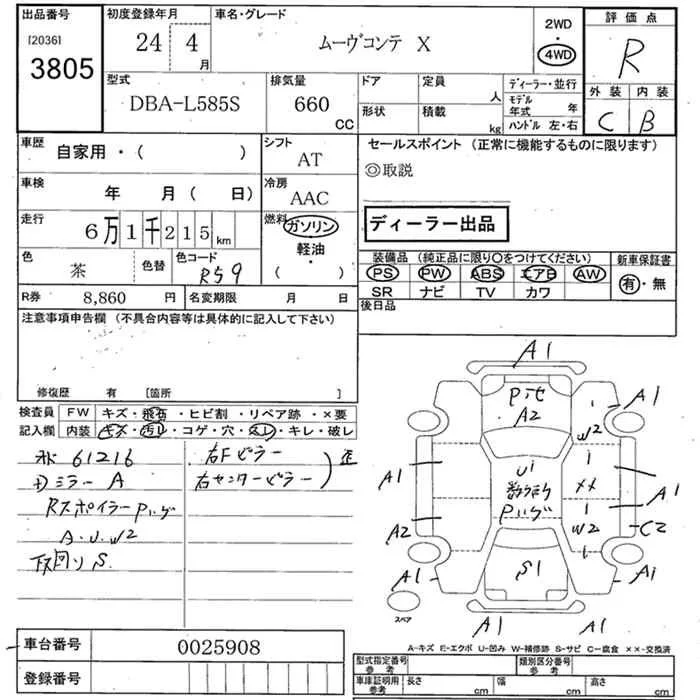 出品番号
[2036]
3805
初度登録年月
24 4
月
車名・グレード
ムーヴコンテ X
2WD
・
4WD
評価点
R
外装 内装
C B
型式
DBA-L585S
排気量
660
CC
ドア
定員
人
形状
積載
kg
ディーラー・並行
モデル
年式 年
ハンドル 左・右
車歴
自家用・( )
シフト
AT
セールスポイント (正常に機能するものに限ります)
◎取説
車検
年 月 ( 日)
冷房
AAC
走行
6万1千215km
燃料
ガソリン
軽油
・
( )
ディーラー出品
色
茶
色替
色コード
R59
装備品 (純正品に限り○をつけてください)
PS PW ABS エアB AW
SR ナビ TV カワ
新車保証書
有・無
R券 8,860 円
名変期限 月 日
後日品
注意事項申告欄 (不具合内容等は具体的に記入して下さい)
修復歴 有 [箇所 ]
検査員
記入欄
FW キズ・飛石・ヒビ割・リペア跡・×要
内装 キズ・汚レ・コゲ・穴・スレ・キレ・破レ
61216
ミラー A
Rスポイラー Pハゲ
A.U.W2
下回り S
右Fピラー
右センターピラー
歪
A1
A1
A1
A2
W2
U1
Pハゲ
××
A1
A1
A2
W2
C2
S1
A1
A1
A1
A1
スペア
A-キズ E-エクボ U-凹み W-補修跡 S-サビ C-腐食 ××-交換済
車台番号 0025908
登録番号
型式指定番号
参考
類別区分番号
参考
車庫証明用
参考
長さ cm
幅 cm
高さ cm